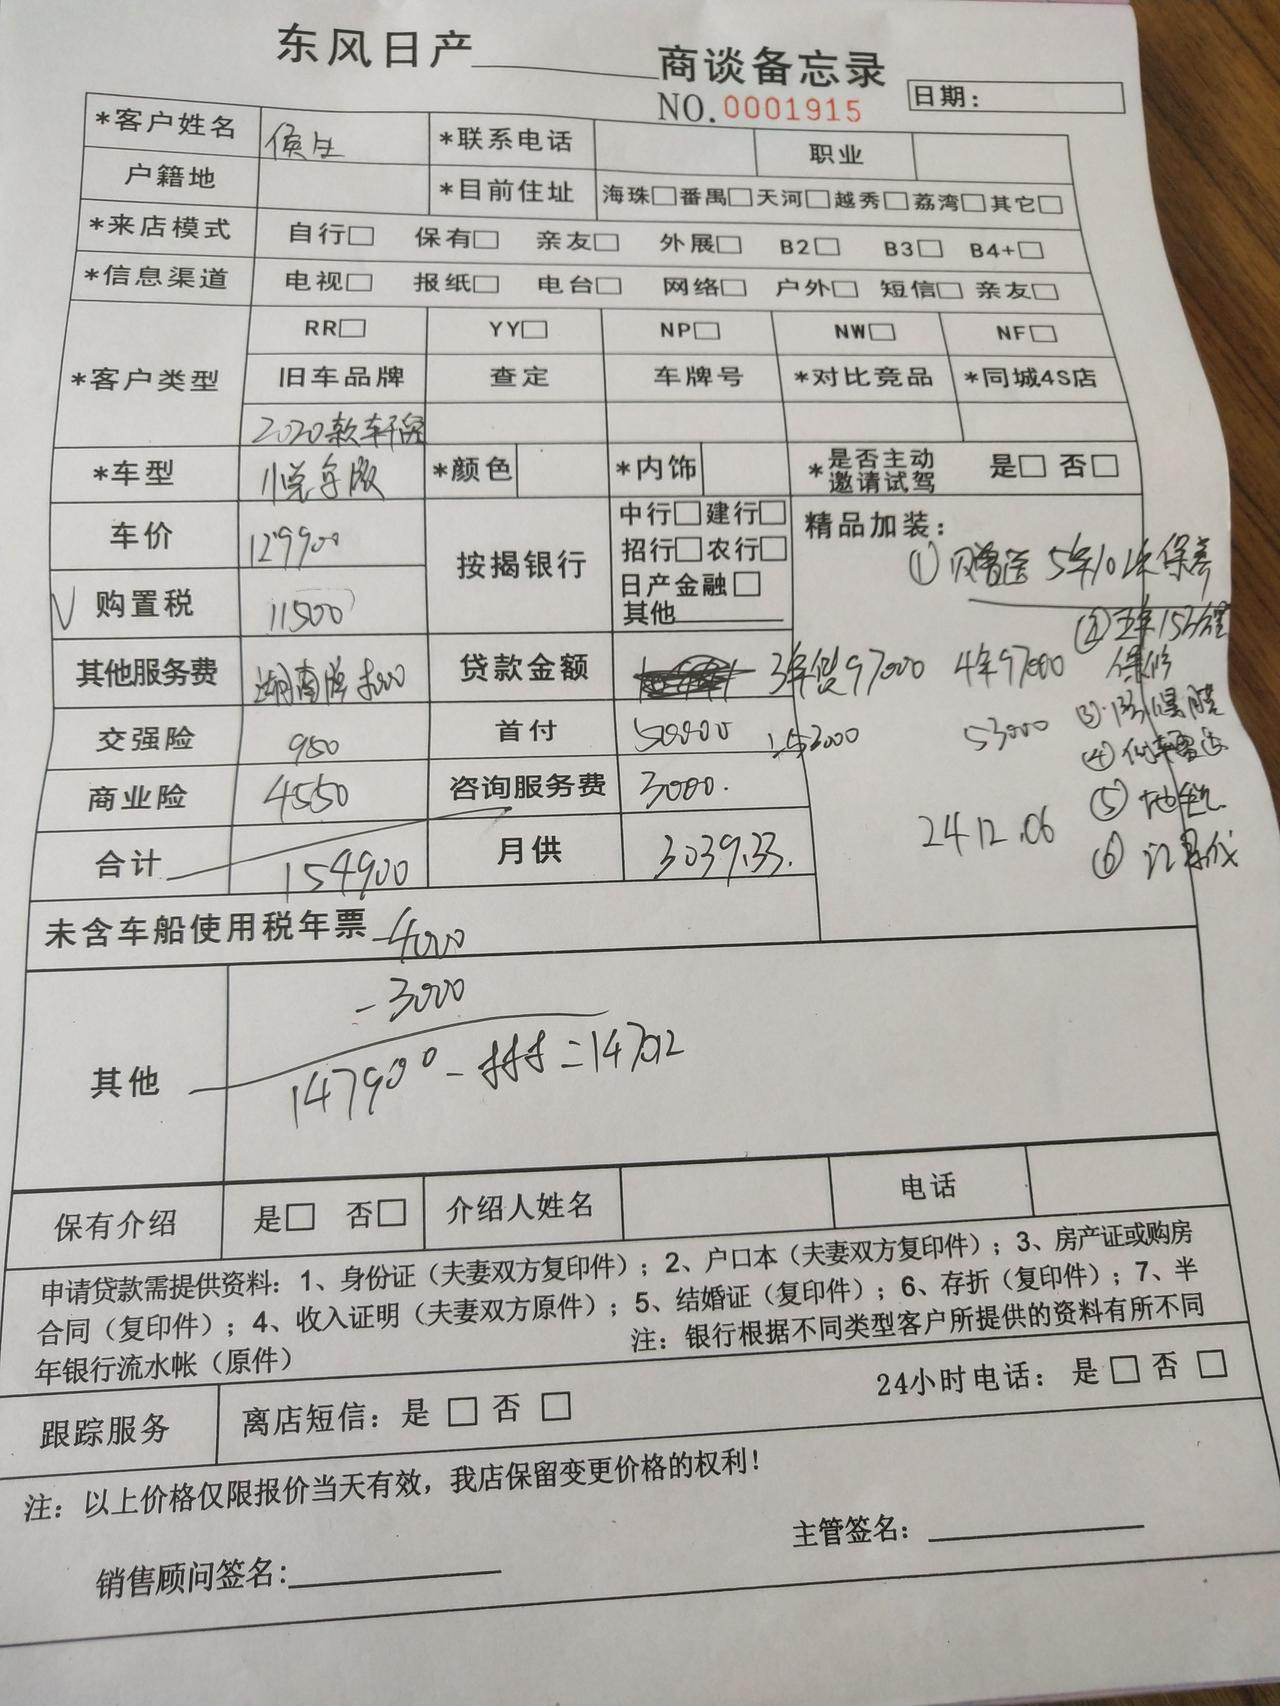 东风日产 商谈备忘录
NO.0001915 日期：
*客户姓名 侯生 *联系电话 职业
户籍地 *目前住址 海珠□番禺□天河□越秀□荔湾□其它□
*来店模式 自行□ 保有□ 亲友□ 外展□ B2□ B3□ B4+□
*信息渠道 电视□ 报纸□ 电台□ 网络□ 户外□ 短信□ 亲友□
*客户类型 RR□ YY□ NP□ NW□ NF□
旧车品牌 查定 车牌号 *对比竞品 *同城4S店
2020款轩逸
*车型 悦享版 *颜色 *内饰 *是否主动邀请试驾 是□ 否□
车价 129900 按揭银行 中行□建行□ 精品加装：
招行□农行□ ①赠送5年10次保养
日产金融□
√购置税 11500 其他 ②五年15万公里保修
其他服务费 湖南牌 贷款金额 3年贷97000 4年97000
交强险 950 首付 50000 53000 53000
商业险 4550 咨询服务费 3000. ④倒车雷达
合计 154900 月供 3039.33. 2412.06 ⑤地毯
⑥
未含车船使用税年票 -4000
-3000
其他 147900 - = 147012
保有介绍 是□ 否□ 介绍人姓名 电话
申请贷款需提供资料：1、身份证（夫妻双方复印件）；2、户口本（夫妻双方复印件）；3、房产证或购房
合同（复印件）；4、收入证明（夫妻双方原件）；5、结婚证（复印件）；6、存折（复印件）；7、半
年银行流水帐（原件） 注：银行根据不同类型客户所提供的资料有所不同
跟踪服务 离店短信：是□ 否□ 24小时电话：是□ 否□
注：以上价格仅限报价当天有效，我店保留变更价格的权利！
销售顾问签名： 主管签名：